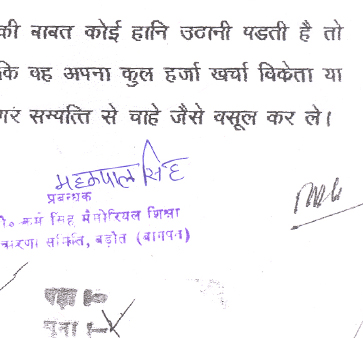 की बाबत कोई हानि उठानी पडती है तो
कि वह अपना कुल हर्जा खर्चा विकेता या
गर सम्पत्ति से चाहे जैसे वसूल कर ले।
महकपाल सिंह
प्रबन्धक
कर्म सिंह मैमोरियल शिक्षा
समिति, बड़ोत (बागपत)